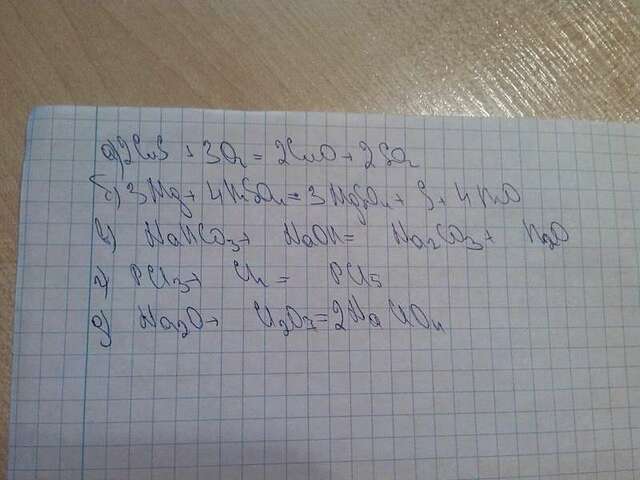 а) 2CuS + 3O₂ = 2CuO + 2SO₂
б) 3Mg + 4H₂SO₄ = 3MgSO₄ + S + 4H₂O
в) NaHCO₃ + NaOH = Na₂CO₃ + H₂O
г) PCl₃ + Cl₂ = PCl₅
д) Na₂O + Cl₂O₇ = 2NaClO₄